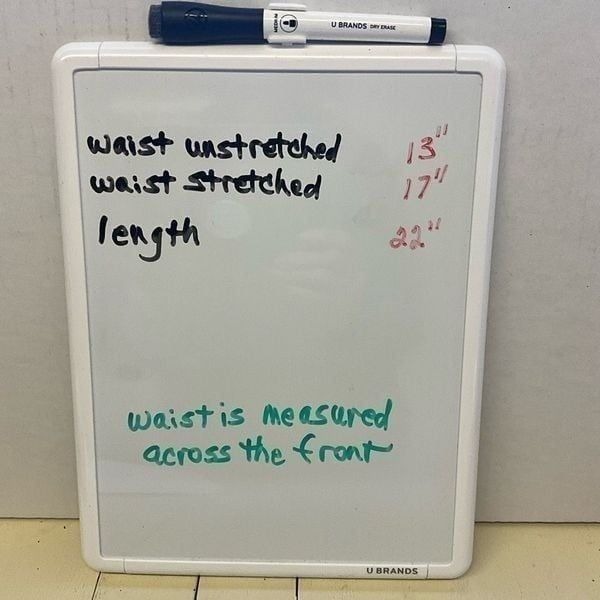 MEDIUM U BRANDS DRY ERASE
waist unstretched 13"
waist stretched 17"
length 22"
waist is measured
across the front
U BRANDS